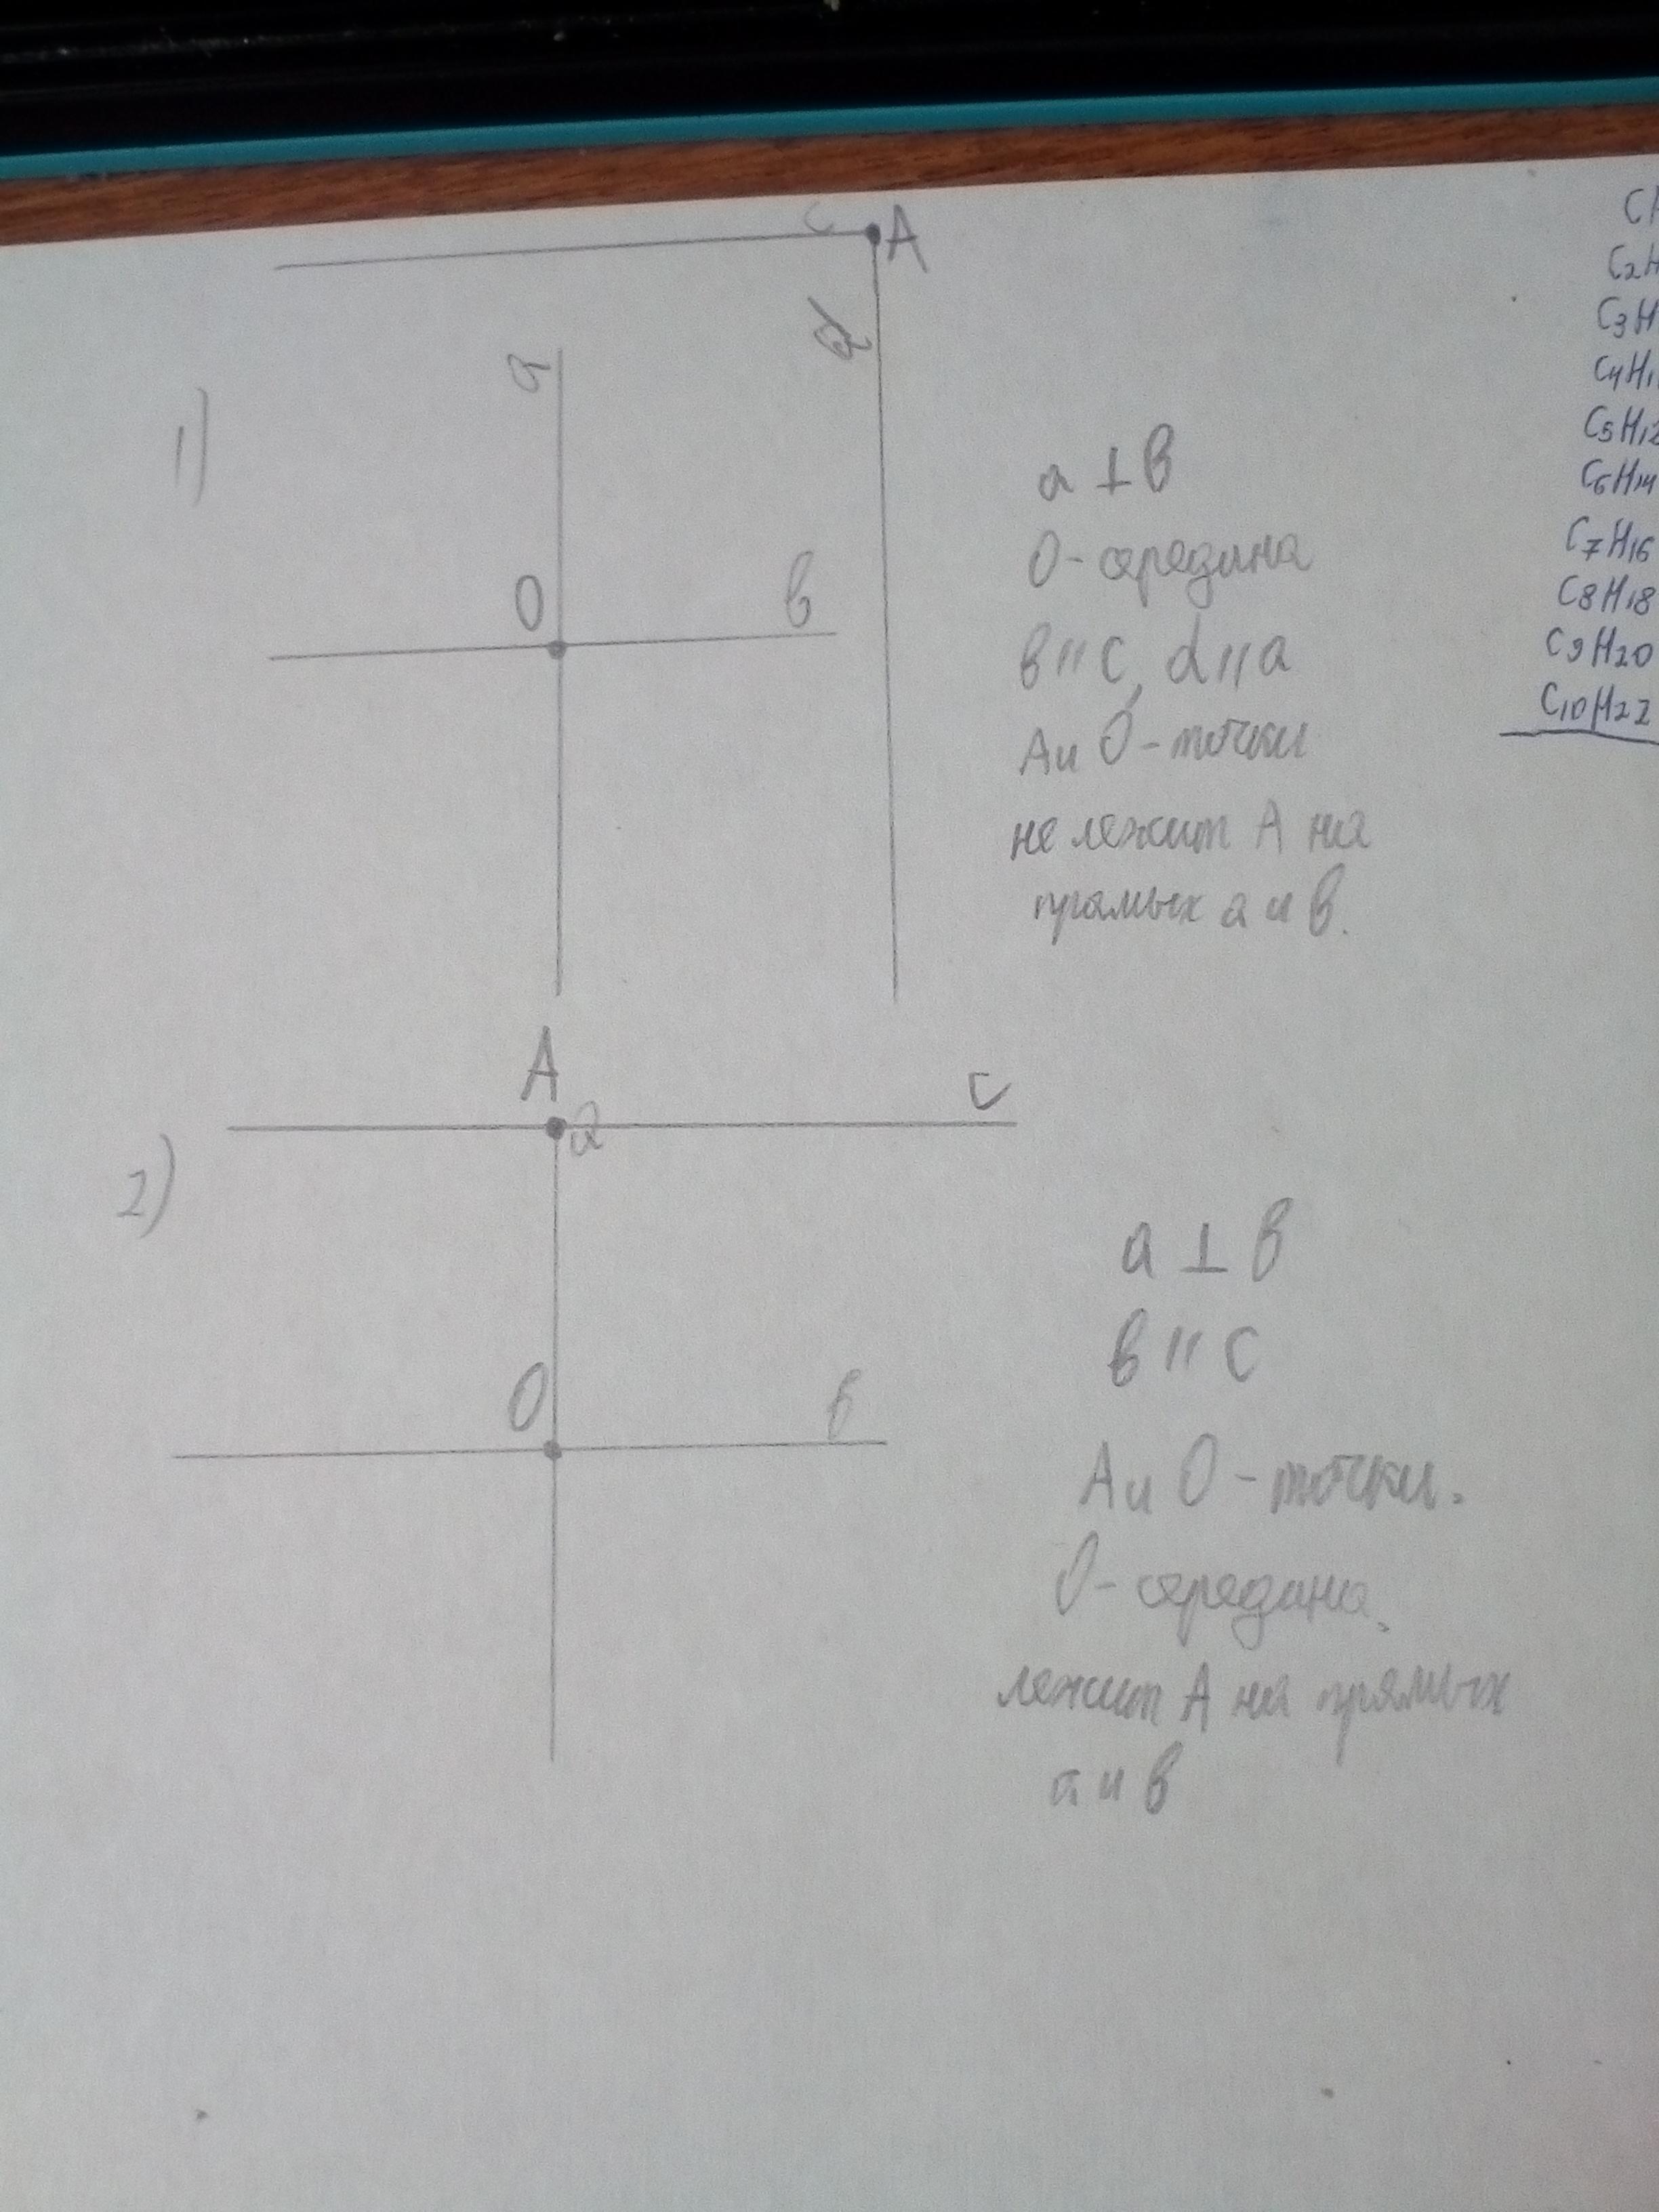 c A
d
a
1)
O
в
a ⊥ в
O - середина
в || c, d || a
A и O - точки
не лежит A на
прямых a и в.
A
c
a
2)
O
в
a ⊥ в
в || c
A и O - точки.
O - середина.
лежит A на прямых
a и в
C2H
C3H
C4H1
C5H12
C6H14
C7H16
C8H18
C9H20
C10H22